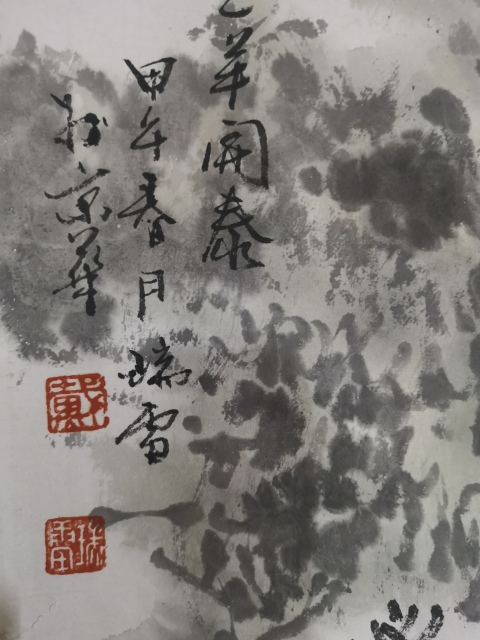 羊開泰
甲午春月瑞雷
於京華